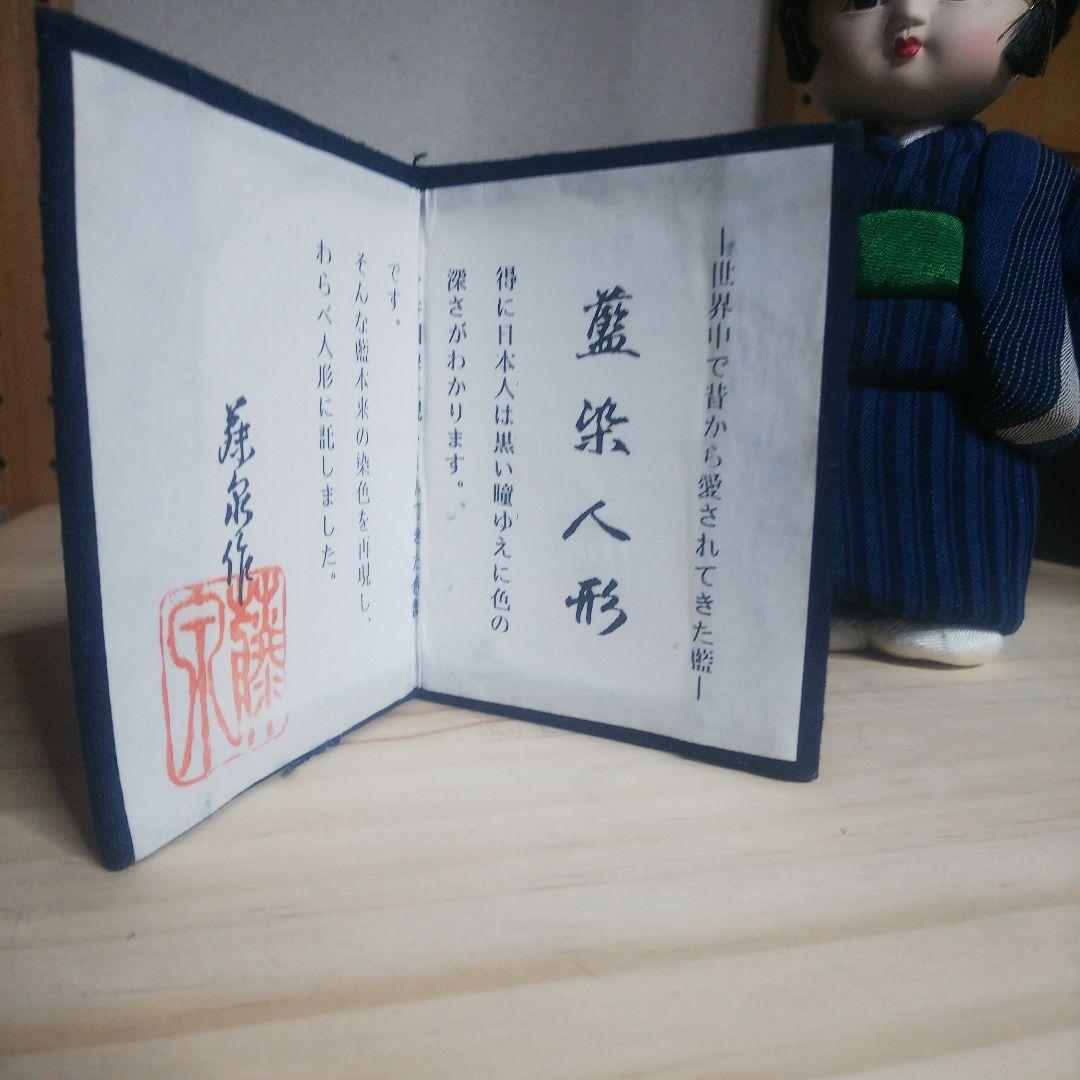 ―世界中で昔から愛されてきた藍―
藍染人形
得に日本人は黒い瞳ゆえに色の
深さがわかります。
です。
そんな藍本来の染色を再現し、
わらべ人形に託しました。
藤泉作
藤泉